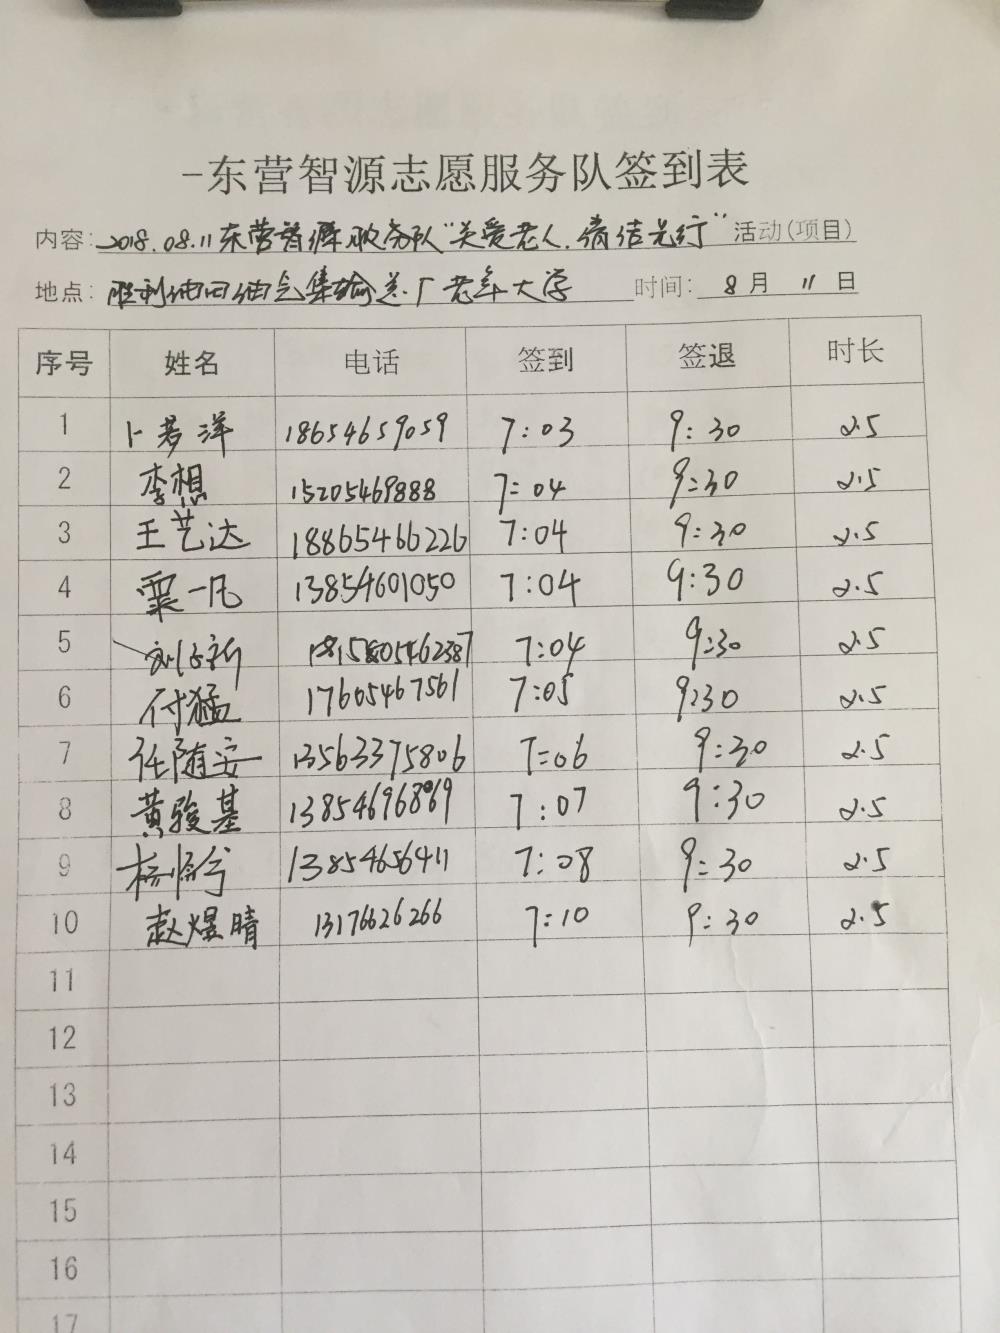 -东营智源志愿服务队签到表
内容: 2018.08.11东营智源服务队“关爱老人,清洁先行”活动(项目)
地点: 胜利油田油气集输总厂老年大学 时间: 8月 11 日
序号 姓名 电话 签到 签退 时长
1 卜若洋 18654659059 7:03 9:30 2.5
2 李想 15205469888 7:04 9:30 2.5
3 王艺达 18865466226 7:04 9:30 2.5
4 粟一凡 13854601050 7:04 9:30 2.5
5 7:04 9:30 2.5
6 付猛 17605467561 7:05 9:30 2.5
7 任随安 13563375806 7:06 9:30 2.5
8 黄骏基 7:07 9:30 2.5
9 13854656411 7:08 9:30 2.5
10 赵煜晴 13176626266 7:10 9:30 2.5
11
12
13
14
15
16
17